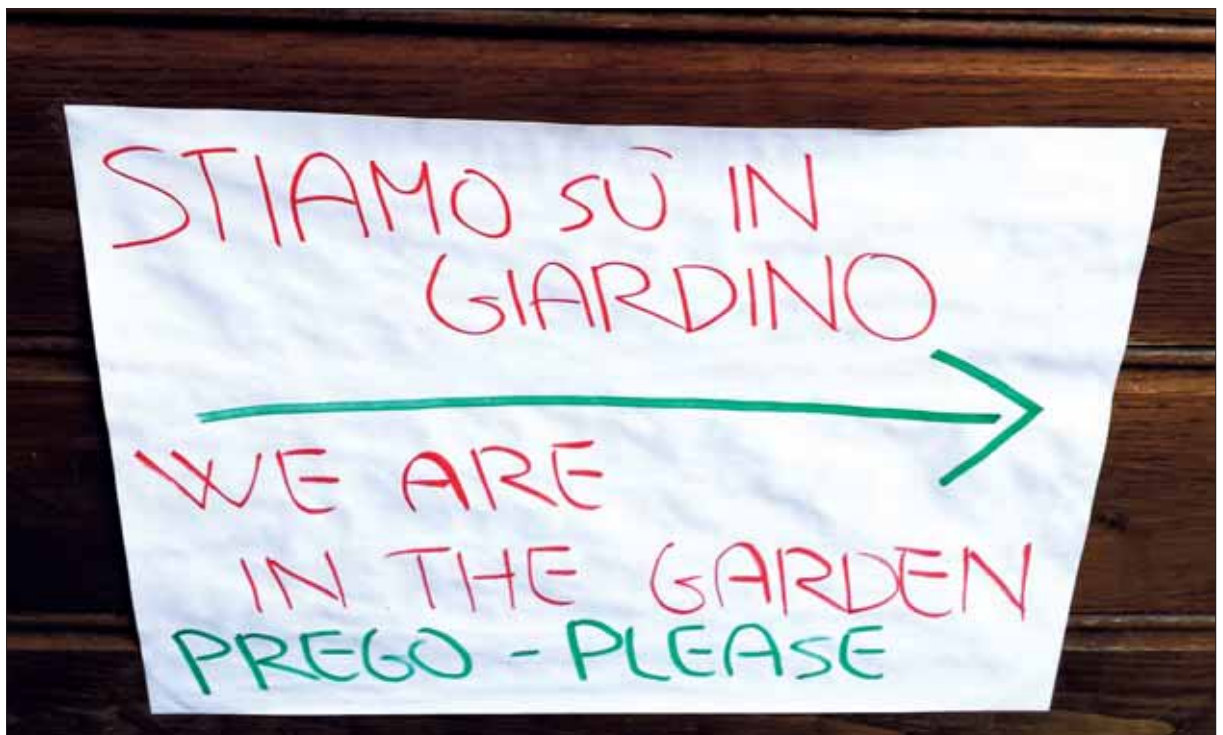 STIAMO SÙ IN
GIARDINO
WE ARE
IN THE GARDEN
PREGO - PLEASE